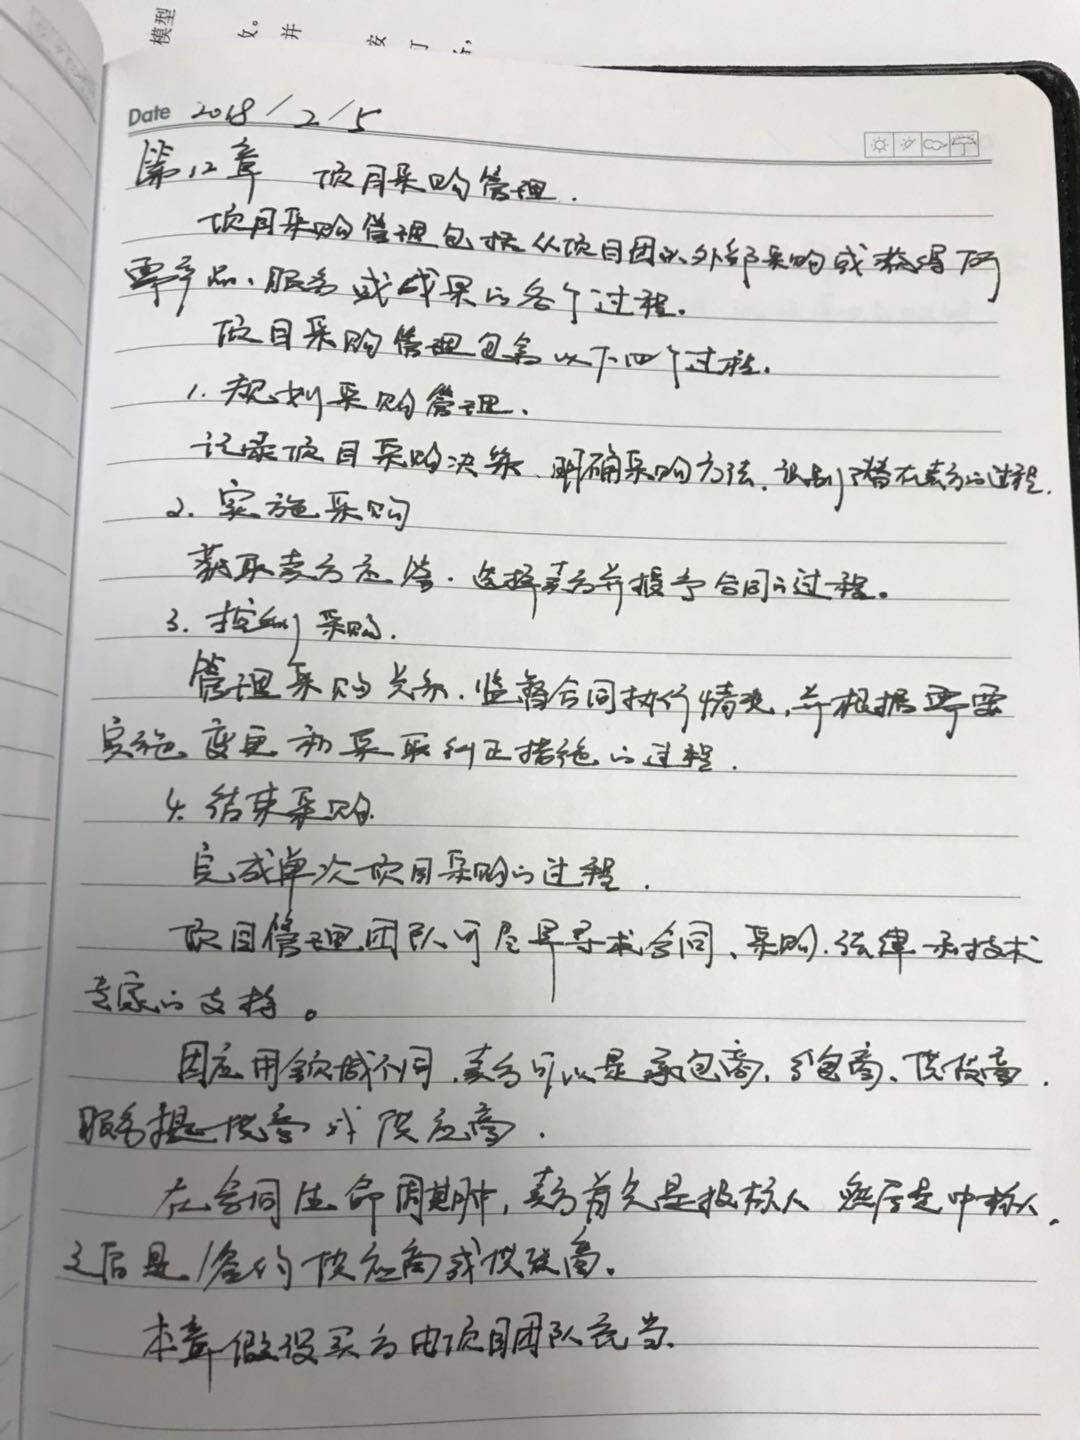 模型
攵。
并
安
丁
Date 2018/2/5
第12章 项目采购管理.
项目采购管理包括从项目团队外部采购或获得所
需产品、服务或成果的各个过程.
项目采购管理包含以下四个过程.
1. 规划采购管理.
记录项目采购决策、明确采购方法、识别潜在卖方的过程.
2. 实施采购
获取卖方应答、选择卖方并授予合同的过程。
3. 控制采购.
管理采购关系、监督合同执行情况,并根据需要
实施变更和采取纠正措施的过程.
4. 结束采购.
完成单次项目采购的过程.
项目管理团队可尽早寻求合同、采购、法律和技术
专家的支持。
因应用领域不同,卖方可以是承包商、分包商、供货商、
服务提供商或供应商.
在合同生命周期中,卖方首先是投标人 然后是中标人,
之后是签约供应商或供货商.
本章假设买方由项目团队充当.